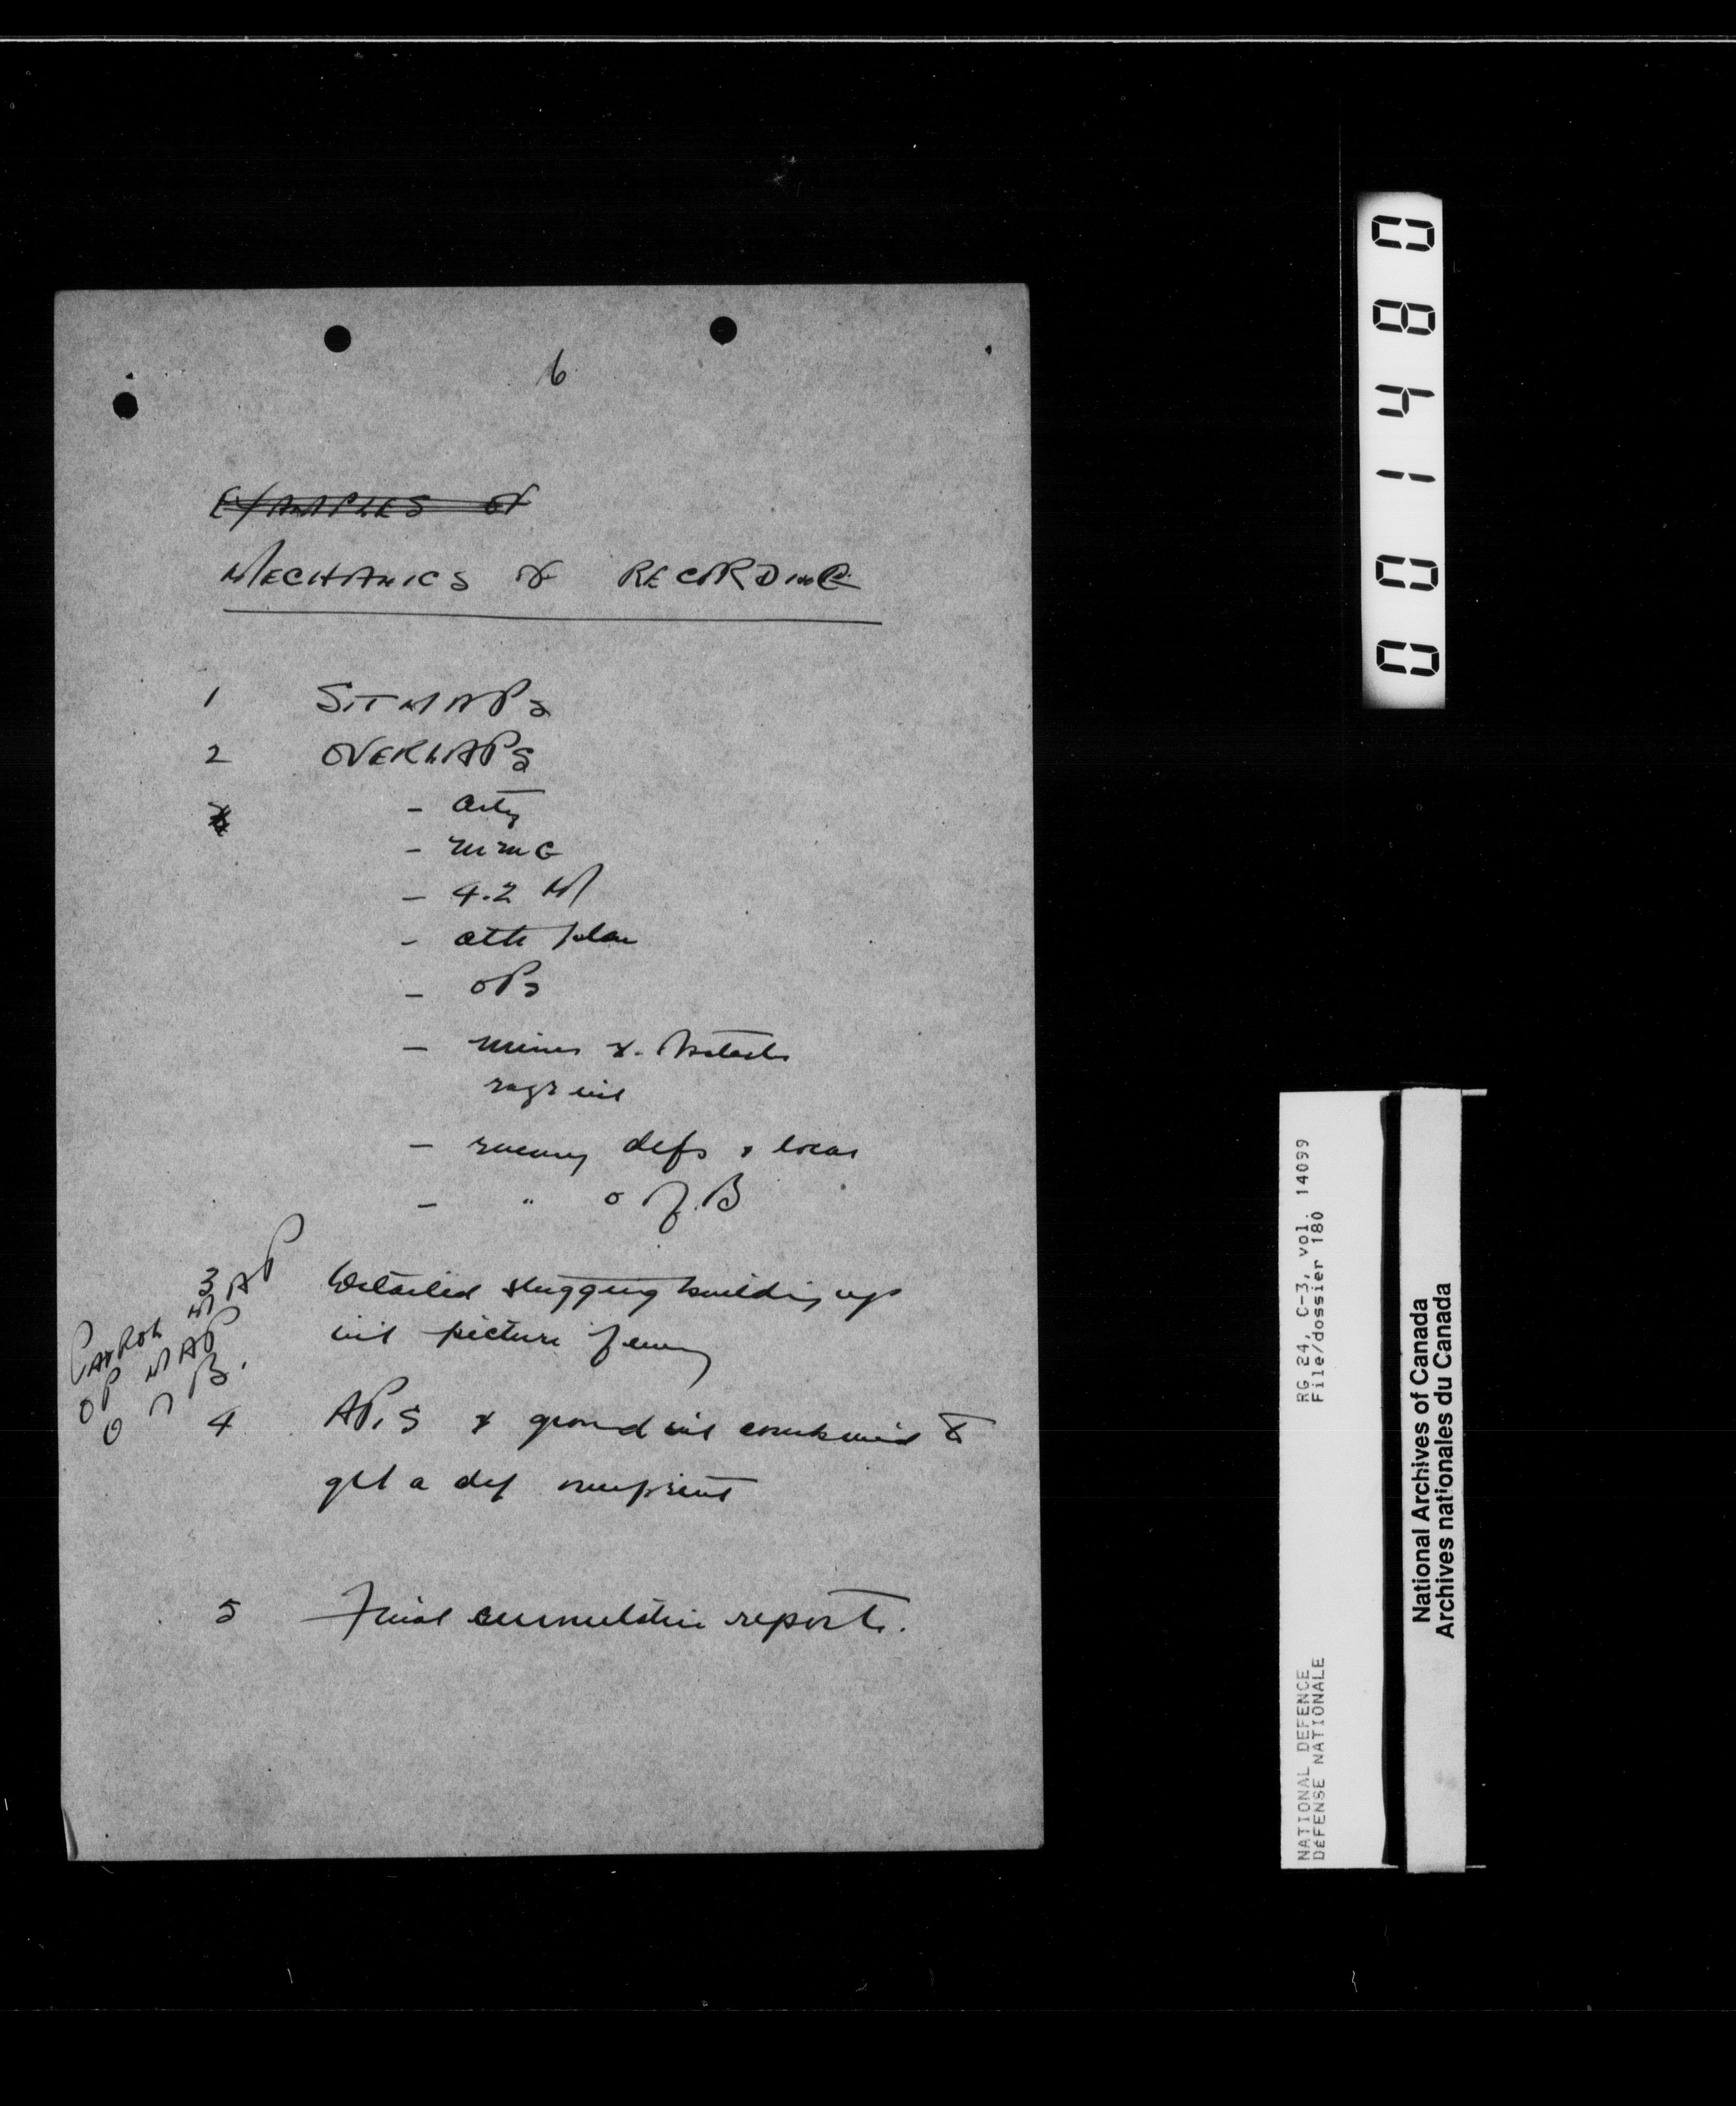 6
EXAMPLES OF
MECHANICS OF RECORDING
1 SITMAPS
2 OVERLAPS
- arty
- mmG
- 4.2 M
- attk plan
- OPs
- mines &
engr int
- enemy defs & locas
- " O of B
3 Detailed slugging building up
int picture of enemy
PATROL MAP
OP MAP
O of B.
4 APIS & ground int combined to
get a def
5 Final cumulative reports.
001480
RG 24, C-3, vol. 14099
File/dossier 180
NATIONAL DEFENCE
DÉFENSE NATIONALE
National Archives of Canada
Archives nationales du Canada